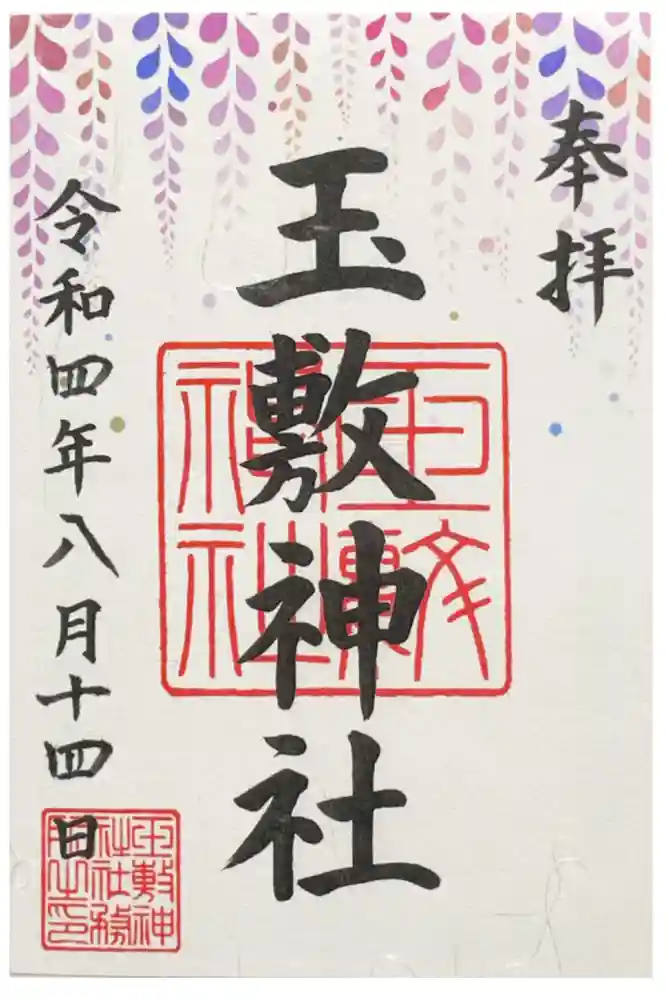 奉拝
玉敷神社
玉敷神社
令和四年八月十四日
玉敷神社社務所之印